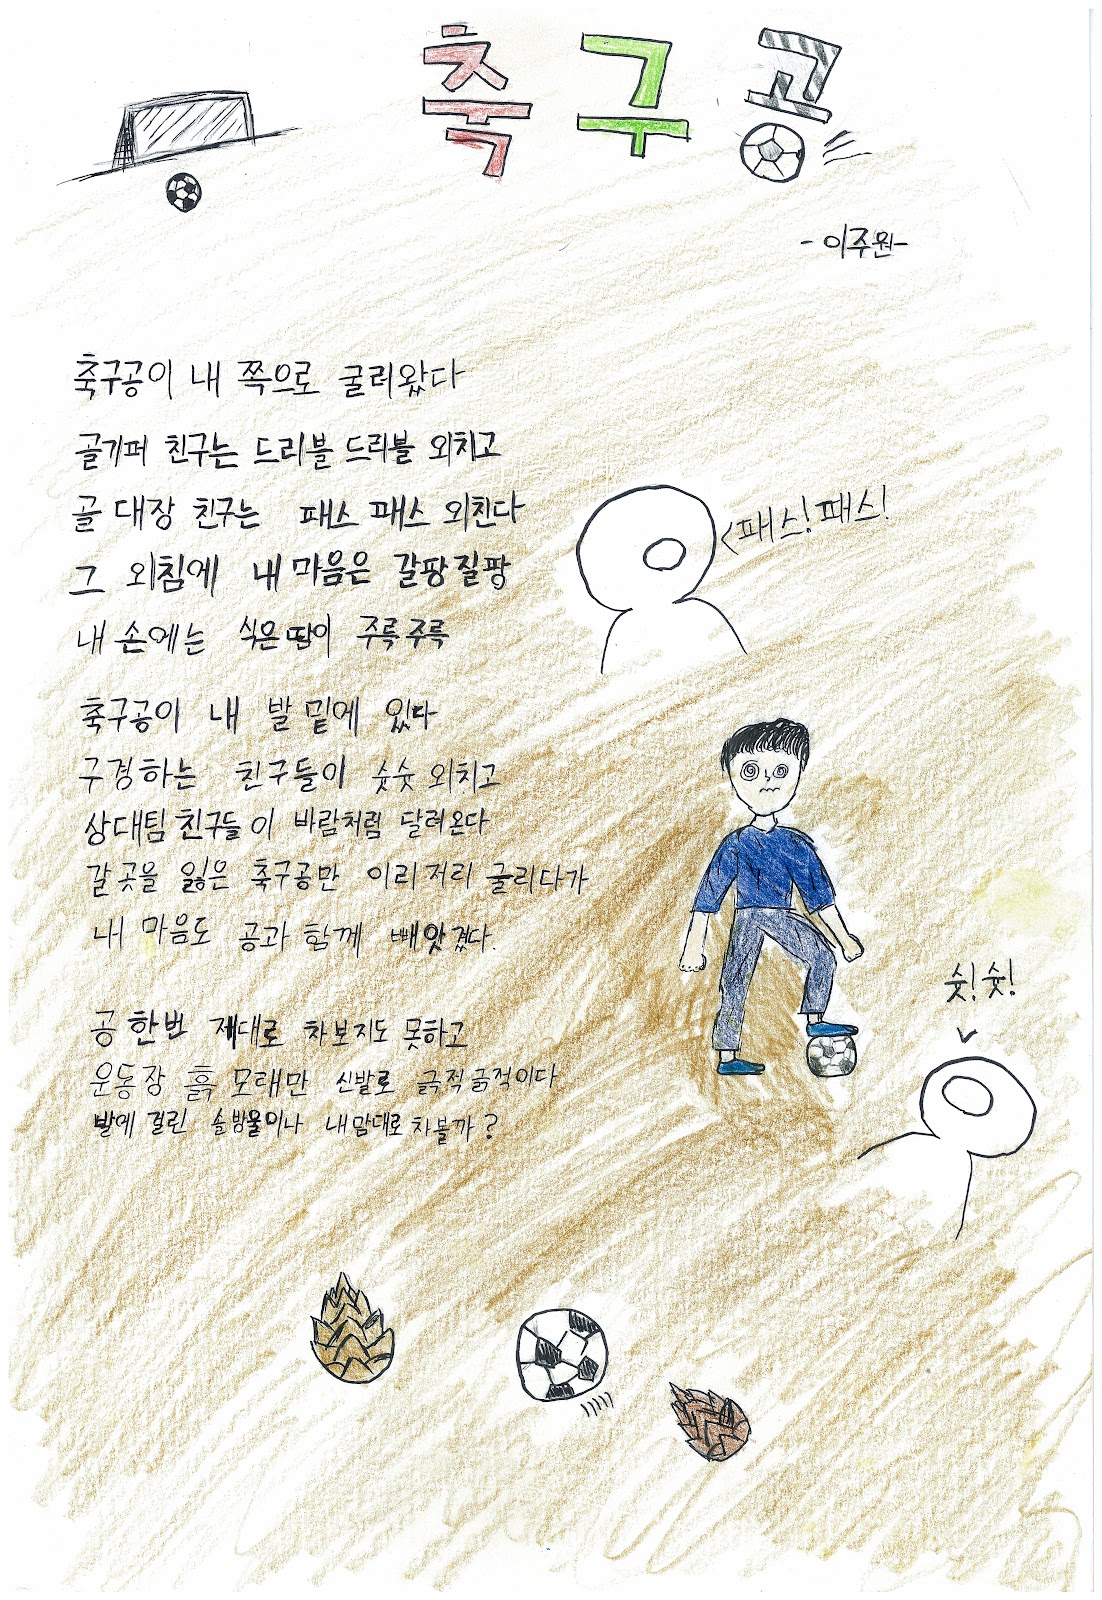 축구공
-이주원-
축구공이 내 쪽으로 굴러왔다
골키퍼 친구는 드리블 드리블 외치고
골 대장 친구는 패스 패스 외친다
그 외침에 내 마음은 갈팡질팡
내 손에는 식은 땀이 주륵주륵
패스! 패스!
축구공이 내 발 밑에 있다
구경하는 친구들이 슛슛 외치고
상대팀 친구들이 바람처럼 달려온다
갈 곳을 잃은 축구공만 이리저리 굴리다가
내 마음도 공과 함께 빼앗겼다.
슛! 슛!
공 한번 제대로 차보지도 못하고
운동장 흙 모래만 신발로 긁적긁적이다
발에 걸린 솔방울이나 내맘대로 차볼까?